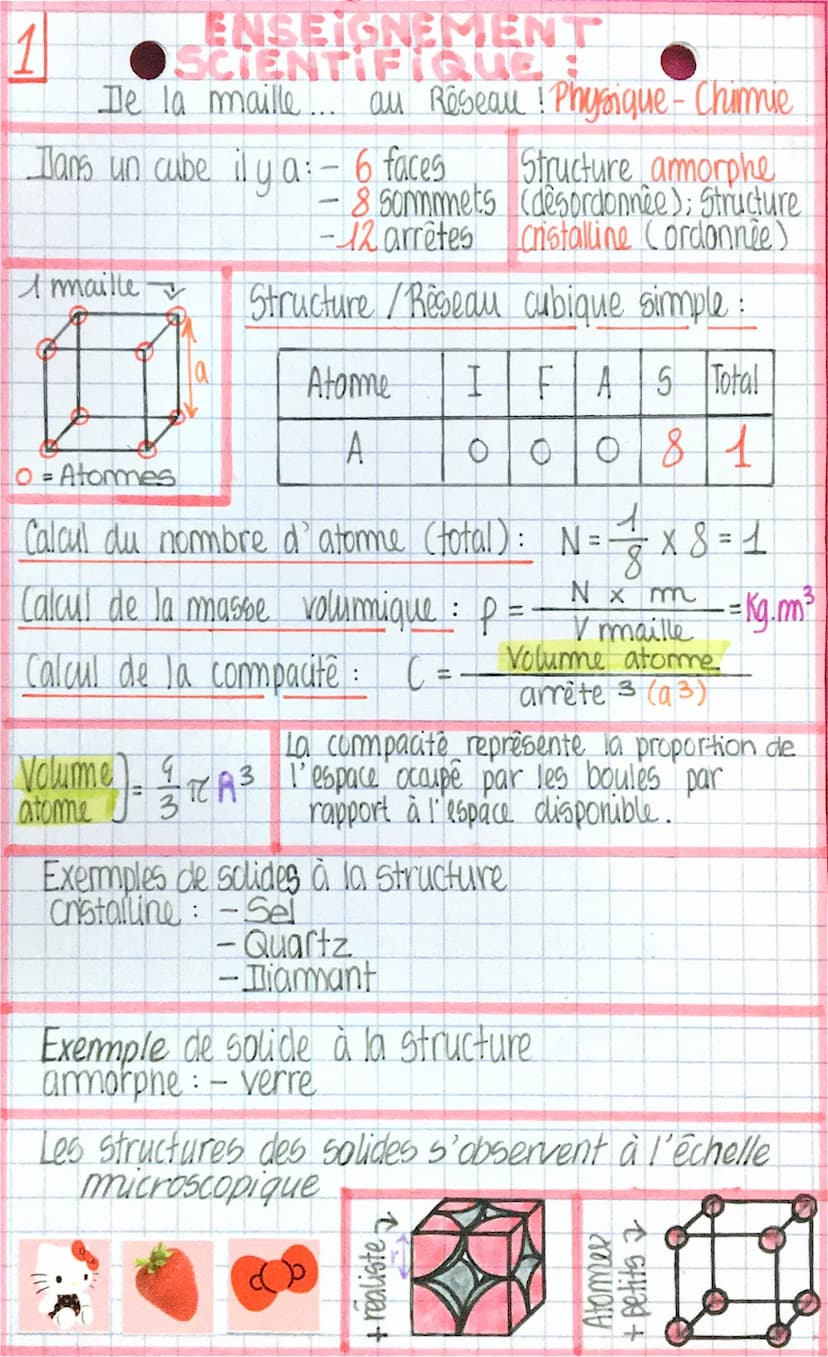 1
ENSEIGNEMENT
SCIENTIFIQUE :
De la maille... au Réseau ! Physique - Chimie
Dans un cube il y a : - 6 faces
- 8 sommets
- 12 arrêtes
Structure amorphe
(désordonnée); Structure
cristalline (ordonnée)
1 maille
a
O = Atomes
Structure / Réseau cubique simple :
Atome I F A S Total
A 0 0 0 8 1
Calcul du nombre d'atome (total) : N = 1/8 x 8 = 1
Calcul de la masse volumique : ρ = N x m / V maille = Kg.m³
Calcul de la compacité : C = Volume atome / arrête ³ (a³)
Volume
atome = 4/3 π R³
La compacité représente la proportion de
l'espace occupé par les boules par
rapport à l'espace disponible.
Exemples de solides à la structure
cristalline : - Sel
- Quartz
- Diamant
Exemple de solide à la structure
amorphe : - verre
Les structures des solides s'observent à l'échelle
microscopique
+ réaliste
r
Atomes
+ petits